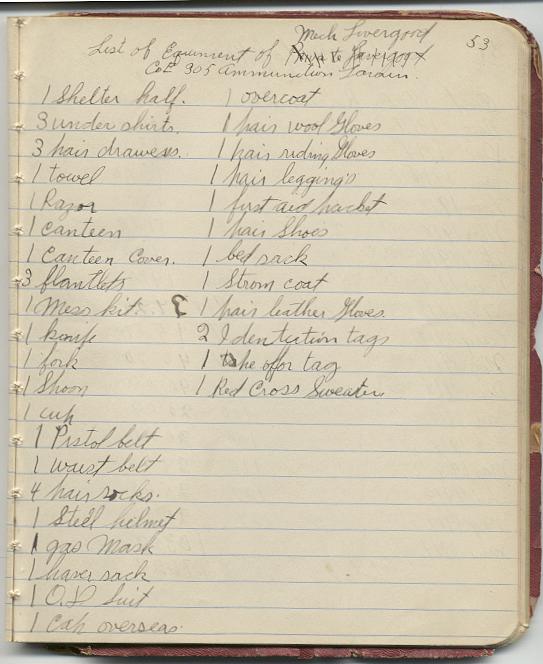 Mech Livergood
53
List of Equiment of
Co E 305 Ammunition Train.
1 Shelter half.
3 under shirts.
3 pair drawers.
1 towel
1 Razor
1 canteen
1 Canteen Cover.
3 blankets
1 Mess kit.
1 knife
1 fork
1 Spoon
1 cup
1 Pistol belt
1 waist belt
4 pair socks.
1 Steel helmet
1 gas Mask
1 haver sack
1 O.D Suit
1 cap overseas.
1 overcoat
1 pair wool Gloves
1 pair riding Gloves
1 pair leggings
1 first aid packet
1 pair Shoes
1 bed sack
1 Strom coat
3 1 pair leather Gloves.
2 Identition tags
1 tag
1 Red Cross Sweater